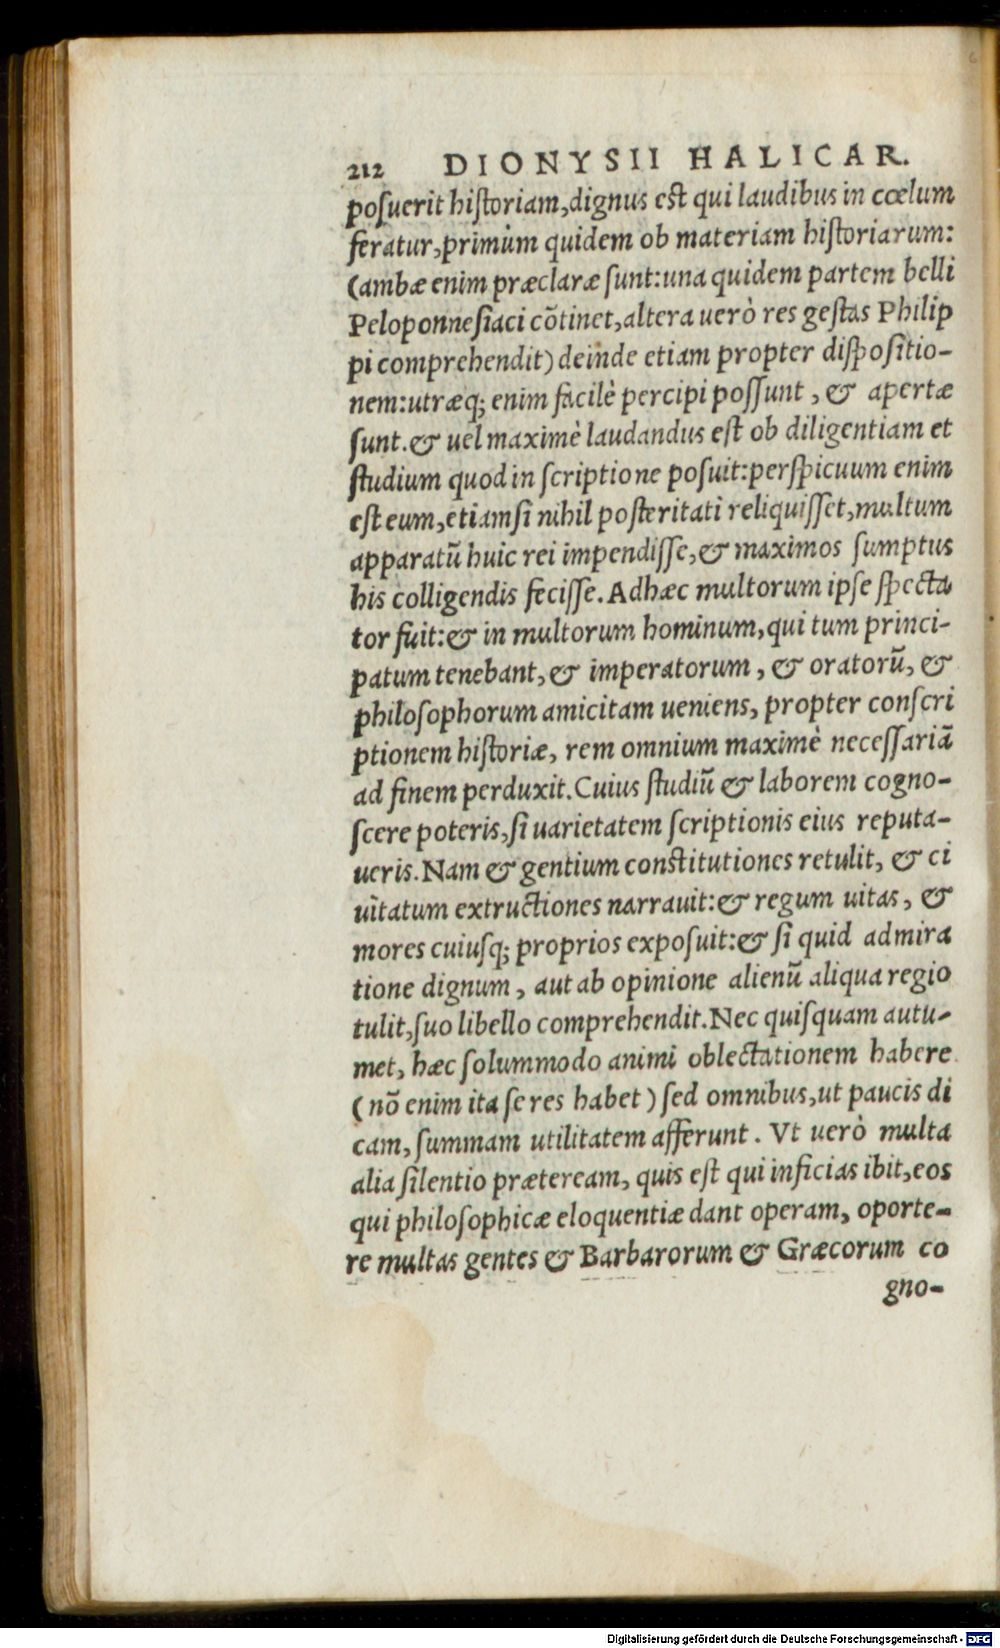 212 DIONYSII HALICAR.
poſuerit hiſtoriam, dignus eſt qui laudibus in cœlum
feratur, primùm quidem ob materiam hiſtoriarum:
(ambæ enim præclaræ ſunt: una quidem partem belli
Peloponneſiaci cõtinet, altera uerò res geſtas Philip
pi comprehendit) deinde etiam propter diſpoſitio-
nem: utræq; enim facilè percipi poſſunt, & apertæ
ſunt. & uel maximè laudandus eſt ob diligentiam et
ſtudium quod in ſcriptione poſuit: perſpicuum enim
eſt eum, etiamſi nihil poſteritati reliquiſſet, multum
apparatũ huic rei impendiſſe, & maximos ſumptus
his colligendis feciſſe. Adhæc multorum ipſe ſpecta
tor fuit: & in multorum hominum, qui tum princi-
patum tenebant, & imperatorum, & oratorũ, &
philoſophorum amicitam ueniens, propter conſcri
ptionem hiſtoriæ, rem omnium maximè neceſſariã
ad finem perduxit. Cuius ſtudiũ & laborem cogno-
ſcere poteris, ſi uarietatem ſcriptionis eius reputa-
ueris. Nam & gentium conſtitutiones retulit, & ci
uitatum extructiones narrauit: & regum uitas, &
mores cuiuſq; proprios expoſuit: & ſi quid admira
tione dignum, aut ab opinione alienũ aliqua regio
tulit, ſuo libello comprehendit. Nec quiſquam autu-
met, hæc ſolummodo animi oblectationem habere
(nõ enim ita ſe res habet) ſed omnibus, ut paucis di
cam, ſummam utilitatem afferunt. Vt uerò multa
alia ſilentio præteream, quis eſt qui inficias ibit, eos
qui philoſophicæ eloquentiæ dant operam, oporte-
re multas gentes & Barbarorum & Græcorum co
gno-
Digitalisierung gefördert durch die Deutsche Forschungsgemeinschaft - DFG